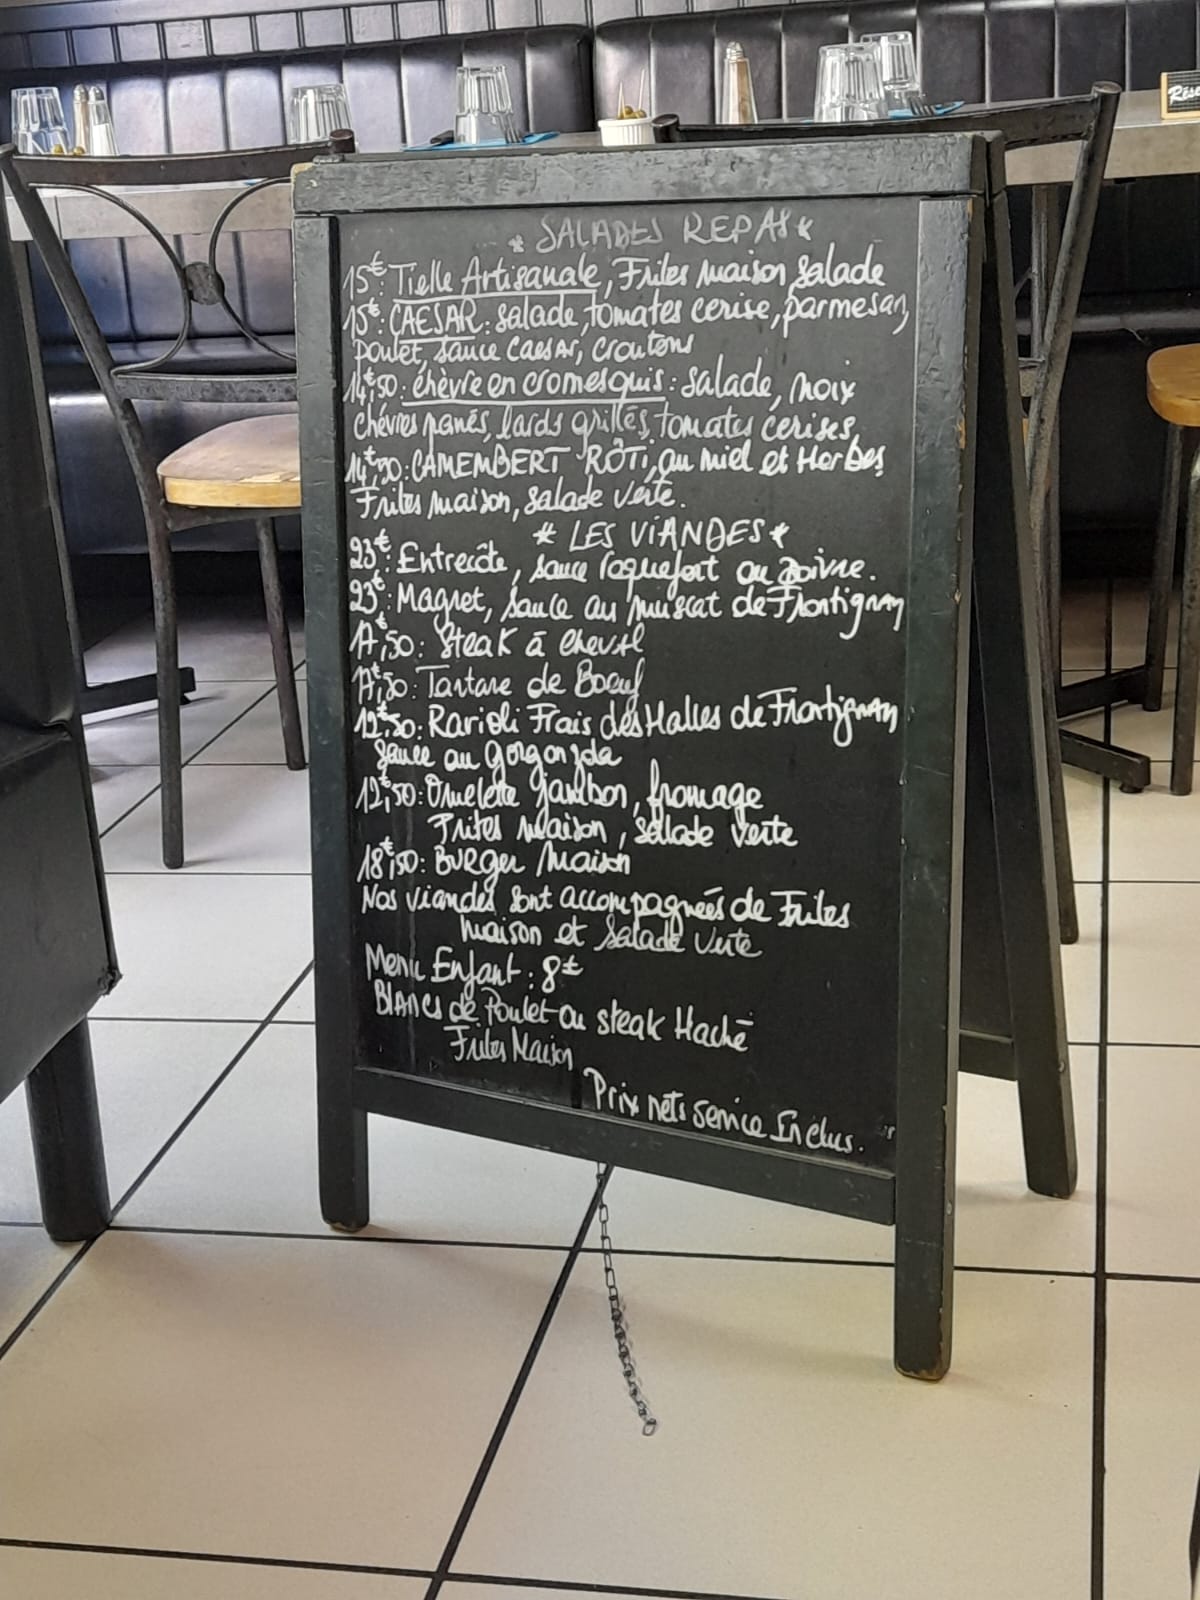 * SALADES REPAS *
15€: Tielle Artisanale, Frites maison salade
15€: CAESAR: salade, tomates cerise, parmesan,
poulet, sauce CAESAR, croutons
14€,50: chèvre en cromesquis: salade, noix
chèvres panés, lards grillés, tomates cerises
14€,50: CAMEMBERT RÔTI, au miel et Herbes
Frites maison, salade verte.
* LES VIANDES *
23€: Entrecôte, sauce roquefort ou poivre.
23€: Magret, sauce au muscat de Frontignan
17€,50: Steak à cheval
17€,50: Tartare de Boeuf
12€,50: Ravioli Frais des Halles de Frontignan
sauce au gorgonzola
12€,50: Omelette jambon, fromage
Frites maison, salade verte
18€,50: BURger Maison
Nos viandes sont accompagnées de Frites
maison et salade verte
Menu Enfant: 8€
BLANCS de Poulet ou steak Haché
Frites Maison
Prix nets service Inclus.